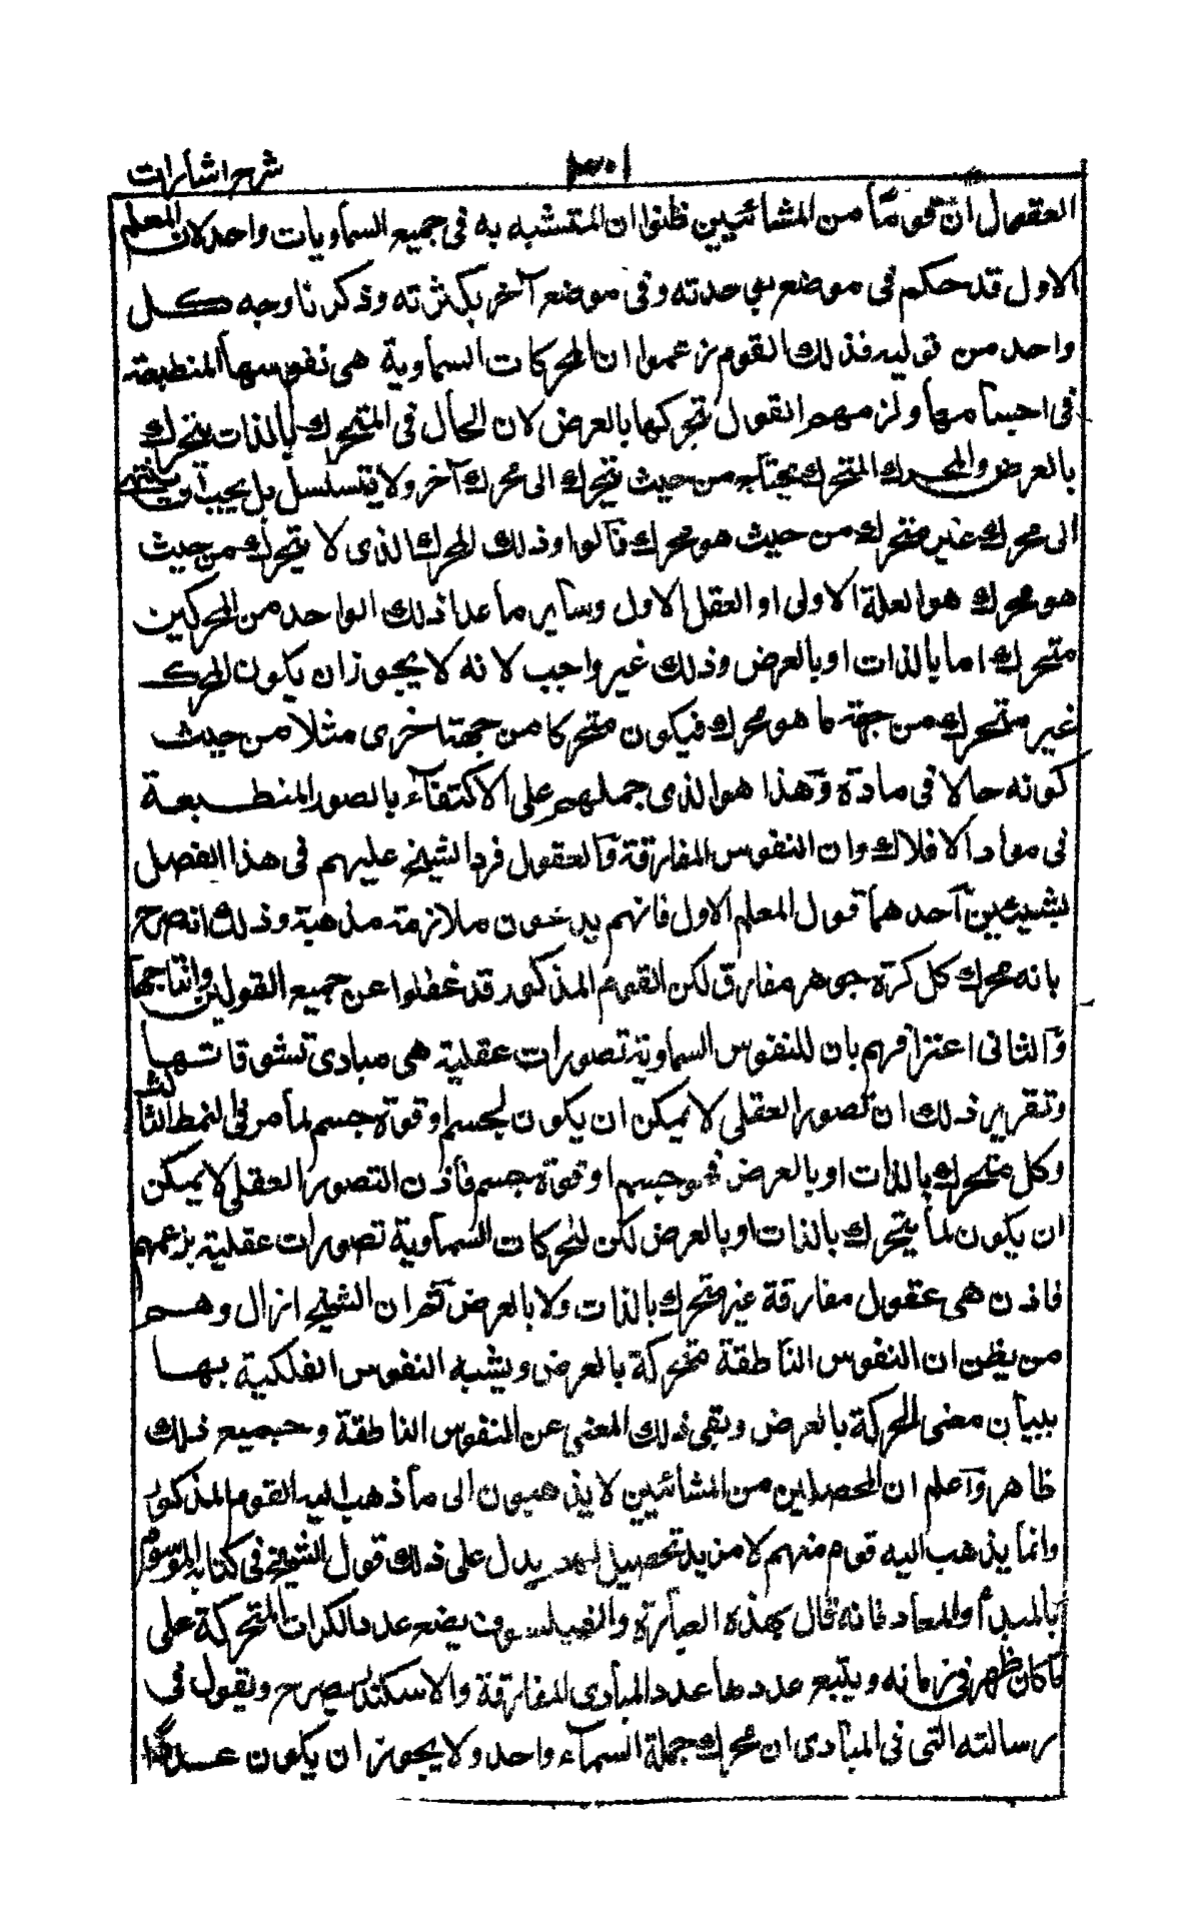 شرح اشارات
العقول ان قوما من المشائيين ظنوا ان المتشبه به فى جميع السماويات واحد لان المعلم
الاول قد حكم فى موضع بوحدته وفى موضع آخر بكثرته وذكرنا وجه كل
واحد من قوليه فذلك القوم زعموا ان المحركات السماوية هى نفوسها المنطبعة
فى اجسامها ولزمهم القول بتحركها بالعرض لان الحال فى المتحرك بالذات يتحرك
بالعرض والمحرك المتحرك يحتاج من حيث يتحرك الى محرك آخر ولا يتسلسل بل يجب ان ينتهى
الى محرك غير متحرك من حيث هو محرك قالوا وذلك المحرك الذى لا يتحرك من حيث
هو محرك هو العلة الاولى او العقل الاول وساير ما عدا ذلك الواحد من المحركين
متحرك اما بالذات او بالعرض وذلك غير واجب لانه لا يجوز ان يكون المحرك
غير متحرك من جهة ما هو محرك فيكون متحركا من جهة اخرى مثلا من حيث
كونه حالا فى مادة وهذا هو الذى حملهم على الاكتفاء بالصور المنطبعة
فى مواد الافلاك وان النفوس المفارقة والعقول فرد الشيخ عليهم فى هذا الفصل
بشيئين احدهما قول المعلم الاول فانهم يدعون ملازمة مذهبه وذلك انه صرح
بانه محرك كل كرة جوهر مفارق لكن القوم المذكور قد غفلوا عن جميع القولين وانتاجهما
والثانى اعترافهم بان للنفوس السماوية تصورات عقلية هى مبادى تشوقاتها
وتقرير ذلك ان تصور العقلى لا يمكن ان يكون لجسم او قوة جسم لما مر فى النمط الثالث
وكل متحرك بالذات او بالعرض فهو جسم او قوة جسم فاذن التصور العقلى لا يمكن
ان يكون لما يتحرك بالذات او بالعرض لكن للمحركات السماوية تصورات عقلية بزعمهم
فاذن هى عقول مفارقة غير متحرك بالذات ولا بالعرض ثم ان الشيخ ازال وهم
من يظن ان النفوس الناطقة متحركة بالعرض ويشبه النفوس الفلكية بها
ببيان معنى الحركة بالعرض ونفى ذلك المعنى عن النفوس الناطقة وجميع ذلك
ظاهر واعلم ان المحصلين من المشائيين لا يذهبون الى ما ذهب اليه القوم المذكور
وانما يذهب اليه قوم منهم لا مزيد تحصيل لهم يدل على ذلك قول الشيخ فى كتابه الموسوم
بالمبدأ والمعاد فانه قال بهذه العبارة والفيلسوف يضع عدد الكرات المتحركة على
ما كان ظهر فى زمانه ويتبع عددها عدد المبادى المفارقة والاسكندر يصرح ويقول فى
رسالته التى فى المبادى ان محرك جملة السماء واحد ولا يجوز ان يكون عددا